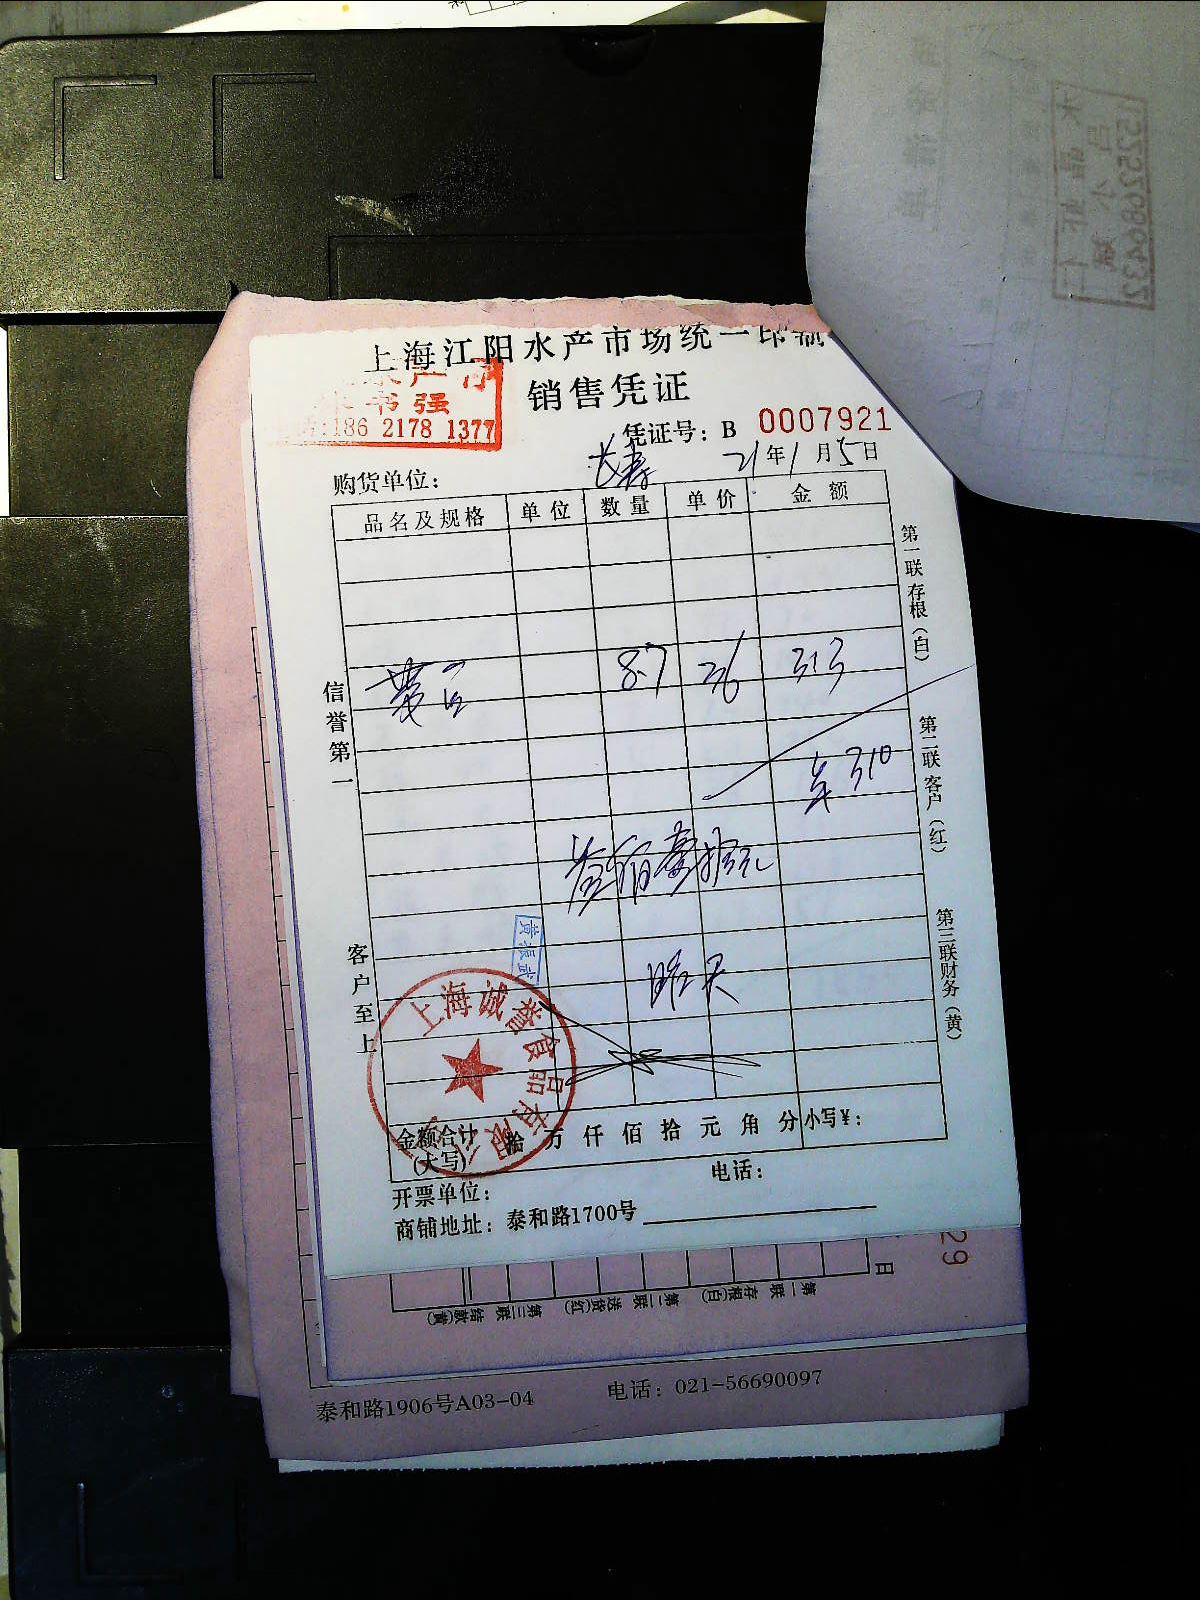 上海江阳水产市场统一印制
销售凭证
书强
186 2178 1377
凭证号：B 0007921
购货单位： 长寿 21年1月5日
品名及规格 单位 数量 单价 金额
8.7 36 313
310
叁佰壹拾元
昨天
信誉第一
客户至上
第一联存根（白）
第二联客户（红）
第三联财务（黄）
黄振武
上海诚誉食品有限公司
金额合计（大写） 拾 万 仟 佰 拾 元 角 分 小写¥：
开票单位： 电话：
商铺地址：泰和路1700号
29
日
第一联 存根(白) 第二联 送货(红) 第三联 结款(黄)
泰和路1906号A03-04 电话：021-56690097
15252686432